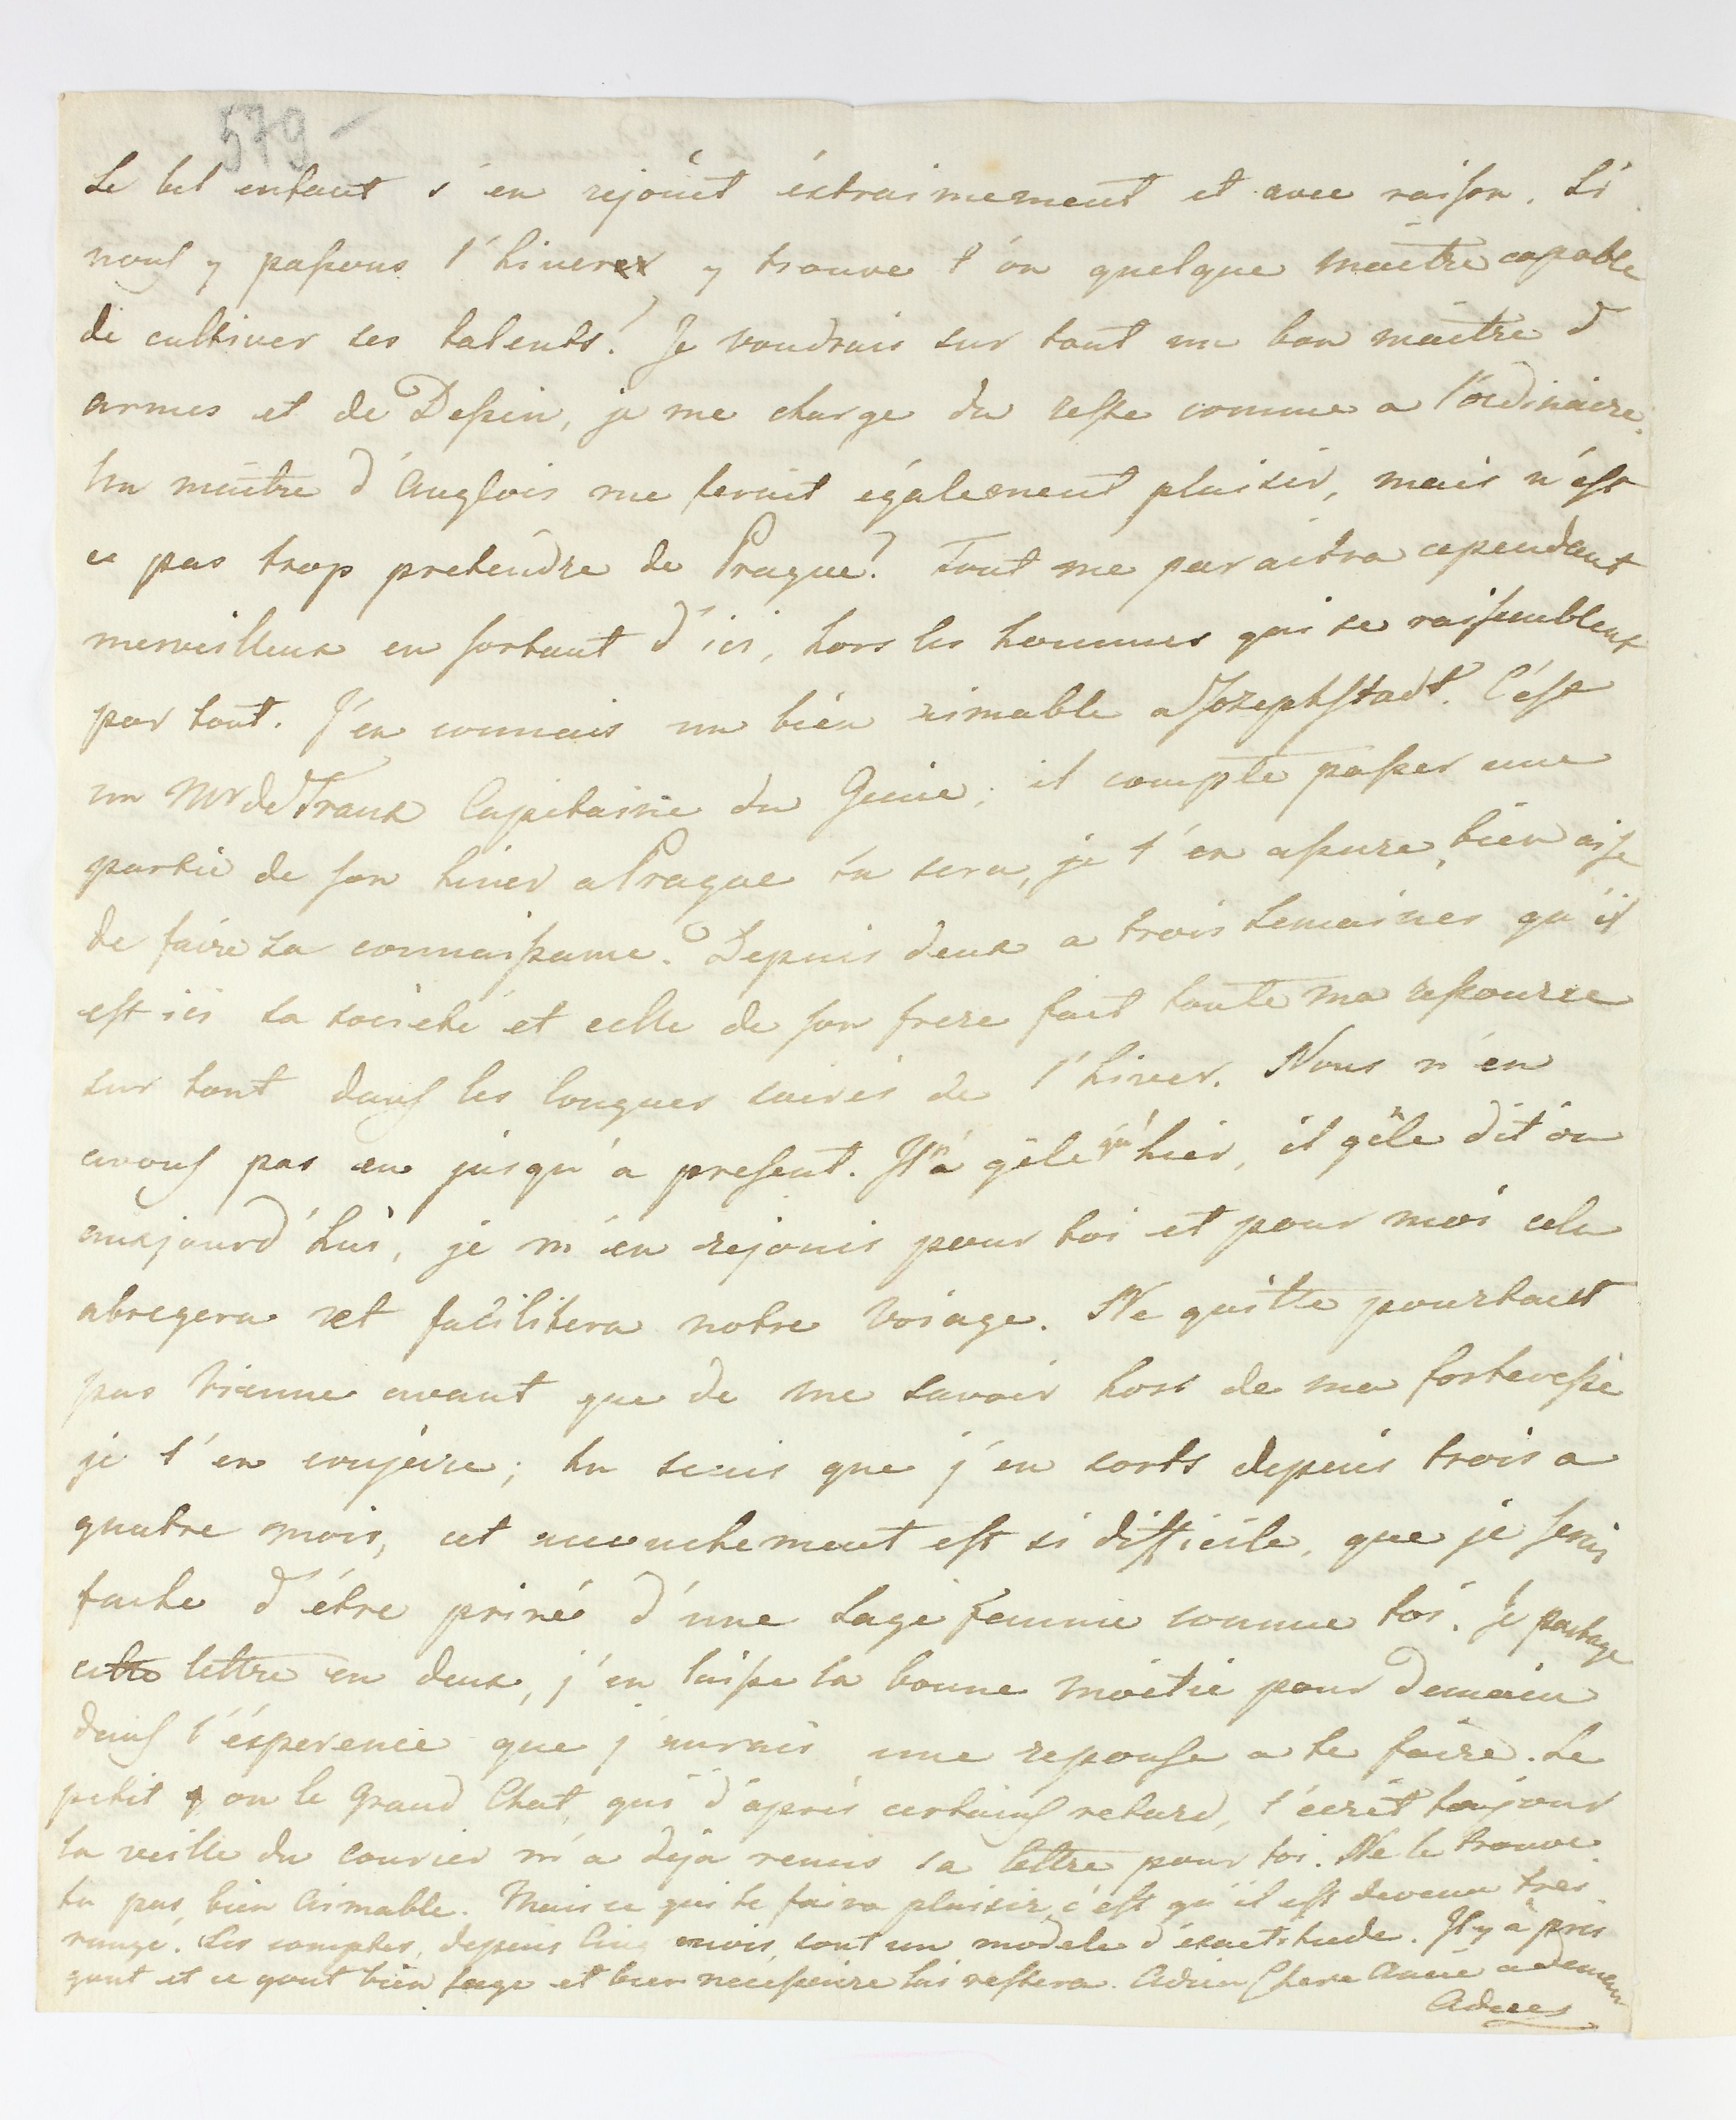 579
Le bel enfant s'en rejouit éxtraimement et avec raison. Si
nous y passons l'hiver y trouve t'on quelque maitre capable
de cultiver ses talents? Je voudrais sur tout un bon maitre d
armes et de Dessin, je me charge du reste comme a l'ordinaire.
Un maitre d'Anglois me feroit égalément plaisir, mais n'est
ce pas trop pretendre de Prague? Tout me paraitra cependant
merveilleux en sortant d'ici, hors les hommes qui se rassemblent
par tout. J'en connais un bien aimable a Josephstadt. C'est
un Mr de Traux Capitaine du Genie; il compte passer une
partie de son hiver a Prague tu sera, je t'en assure, bien aise
de faire sa connaissance. Depuis deux a trois semaines qu'il
est ici sa société et celle de son frere fait toute ma ressource
sur tout dans les longues soirés de l'hiver. Nous n'en
avons pas eu jusqu'a present. Il n'a gêlé qu'hier, il gêle dit on
aujourd'hui, je m'en rejouis pour toi et pour moi cela
abregera et facilitera notre voiage. Ne quitte pourtant
pas Vienne avant que de me savoir hors de ma forteresse
je t'en conjure; tu scais que j'en sorts depuis trois a
quatre mois, cet accouchement est si difficile, que je serois
faché d'étre privé d'une sage femme comme toi. Je partage
cette lettre en deux, j'en laisse la bonne moitié pour demain
dans l'ésperence que j'aurais une reponse a te faire. Le
petit ou le grand Chat, qui d'aprés certains retard, t'ecrit toujour
la veille du courier m'a deja remis sa lettre pour toi. Ne le trouve
tu pas bien aimable. Mais ce qui te faira plaisir, c'est qu'il est devenu tres
rangé. Ses comptes, depuis cinq mois, sont un modele d'éxactitude. Il y a pris
gout et ce gout bien sage et bien necessaire lui restera. Adieu Chere Amie a demain
Adieu